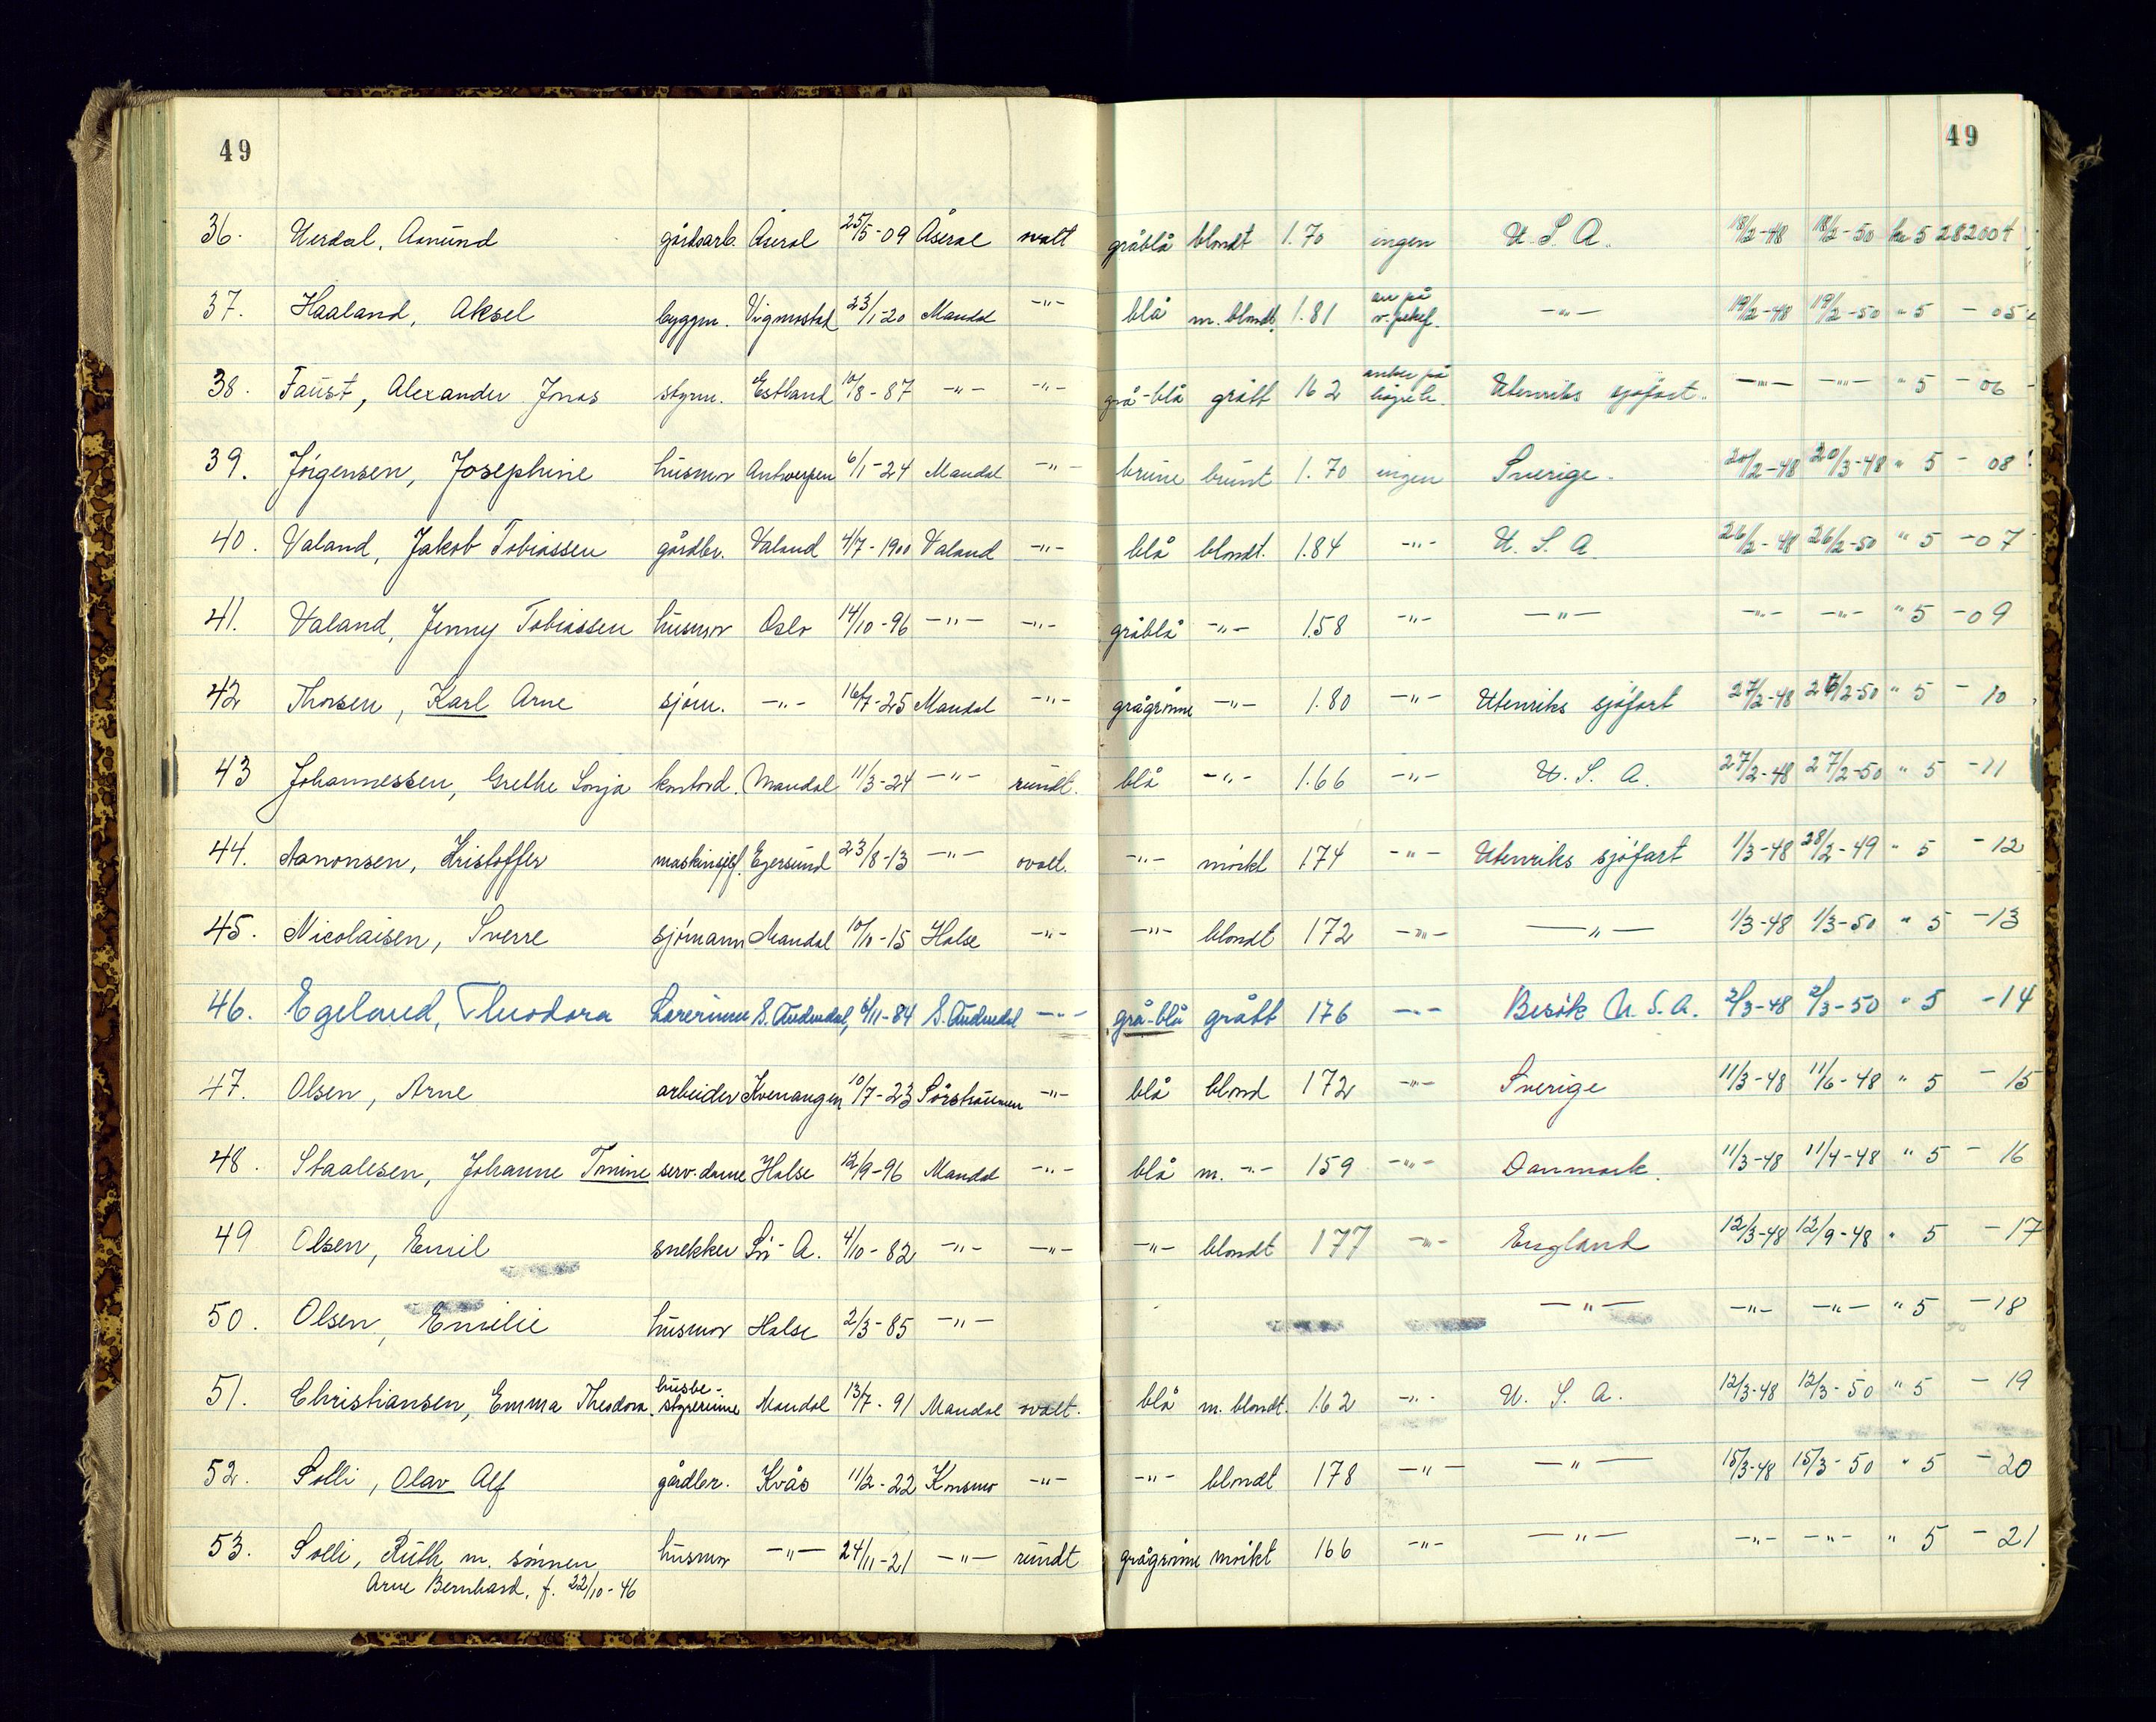 49 49
36. Uerdal, Asmund gårdsarb. Åseral 25/5-09 Åseral ovalt gråblå blondt 1.70 ingen U. S. A. 18/2-48 18/2-50 kr 5 282004
37. Haaland, Aksel byggm. Vigmostad 23/1-20 Mandal -"- blå m. blondt 1.81 arr på v. pekef. -"- 19/2-48 19/2-50 " 5 - 05
38. Faust, Alexander Jonas styrm. Estland 10/8-87 -"- -"- grå-blå grått 162 anker på Utenriks sjøfart. -"- -"- " 5 - 06
39. Jörgensen, Josephine husmor Antwerpen 6/1-24 Mandal -"- brune brunt 1.70 ingen Sverige. 20/2-48 20/3-48 " 5 - 08
40. Valand, Jakob Tobiassen gårdbr. Valand 4/7-1900 Valand -"- blå blondt. 1.84 -"- U. S. A 26/2-48 26/2-50 " 5 -07
41. Valand, Jenny Tobiassen husmor Oslo 14/10-96 -"- -"- gråblå -"- 1.58 -"- -"- -"- -"- " 5 -09
42 Thorsen, Karl Arne sjöm. -"- 16/7-25 Mandal -"- grågrönne -"- 1.80 -"- Utenriks sjöfart 27/2-48 26/2-50 " 5 - 10
43 Johannessen, Grethe Sonja kontord. Mandal 11/3-24 -"- rundt. blå -"- 1.66 -"- U. S. A. 27/2-48 27/2-50 " 5 -11
44. Aanonsen, Kristoffer maskinsjef. Egersund 23/8-13 -"- ovalt. -"- mörkt 174 -"- Utenriks sjöfart 1/3-48 28/2-49 " 5 -12
45. Nicolaisen, Sverre sjömann Mandal 10/11-15 Halse -"- -"- blondt 172 -"- -"- 1/3-48 1/3-50 " 5 -13
46. Egeland, Theodora Lærerinne S. Audnedal, 6/11-84 S. Audnedal -"- grå-blå grått 176 -"- Besök U. S. A. 2/3-48 2/3-50 " 5 -14
47. Olsen, Arne arbeider Kvenangen 10/7-23 Sörstraumen -"- blå blond 172 -"- Sverige 11/3-48 11/6-48 " 5 - 15
48. Staalesen, Johanne Tomine serv.dame Halse 12/9-96 Mandal -"- blå m. -"- 159 -"- Danmark. 11/3-48 11/4-48 " 5 - 16
49 Olsen, Emil snekker Sör-A. 4/10-82 -"- -"- -"- blondt 177 -"- England 12/3-48 12/9-48 " 5 -17
50. Olsen, Emilie husmor Halse 2/3-85 -"- -"- -"- -"- " 5 -18
51. Christiansen, Emma Theodora. husbe-styrerinne Mandal 13/7-91 Mandal ovalt. blå m. blondt. 1.62 -"- U. S. A. 12/3-48 12/3-50 " 5 - 19
52. Solli, Olav Alf gårdbr. Kvås 11/2-22 Konsmo -"- -"- blondt 178 -"- -"- 15/3-48 15/3-50 " 5 - 20
53. Solli, Ruth m. sönnen husmor -"- 24/11-21 -"- rundt grågrönne mörkt 166 -"- -"- -"- -"- " 5 - 21
Arne Bernhard, f. 22/10-46